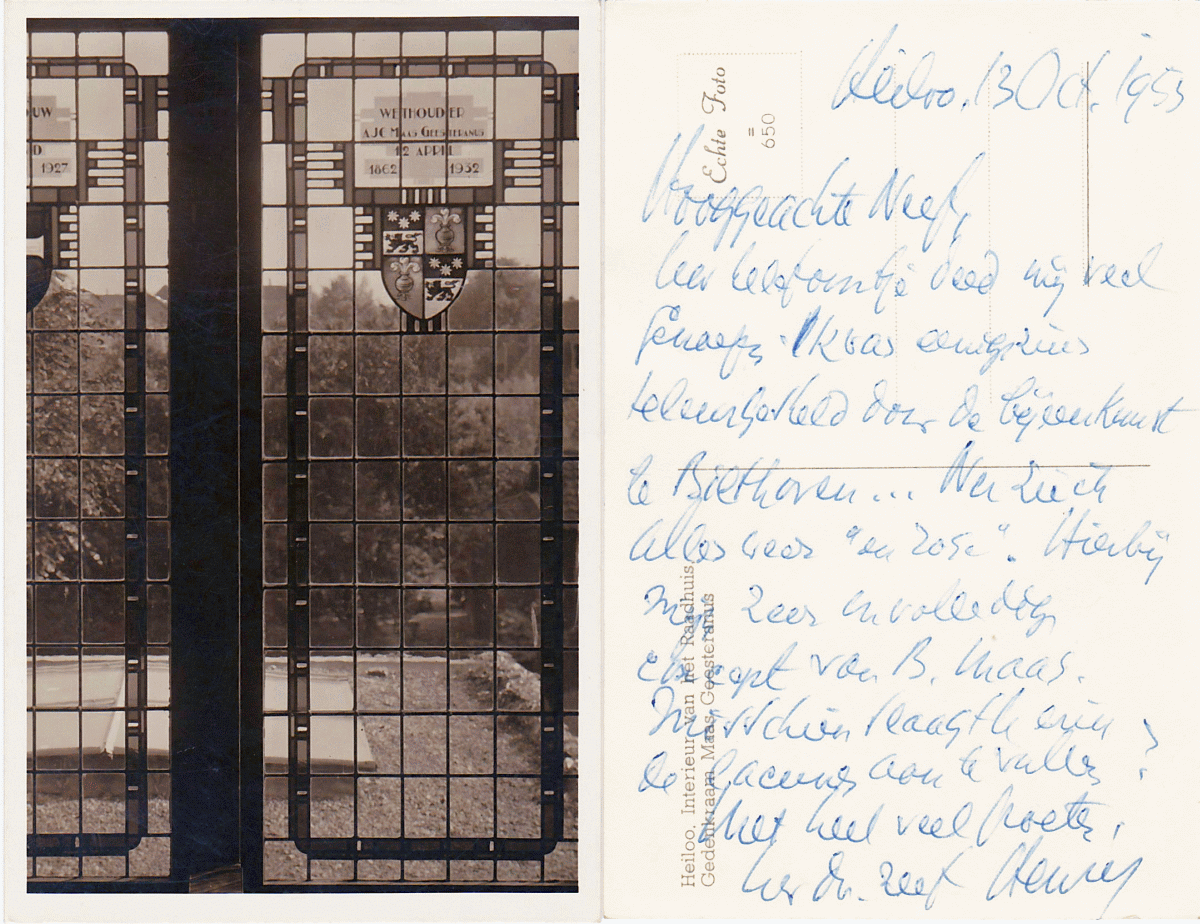 OUW
D
1927
WETHOUDER
A.J.C. MAAS GEESTERANUS
12 APRIL
1862 1932
Echte Foto
=
650
Heiloo, Interieur van het Raadhuis
Gedenkraam Maas Geesteranus
Heiloo. 13 Oct. 1953
Hooggeachte Neef,
deed mij veel
Genoegen. Ik was enigzins
teleurgesteld door de bijeenkomst
te Bilthoven... Nu zie ik
alles weer "en rose". Hierbij
mijn zeer onvolledig
concept van B. Maas.
Misschien slaagt U erin
de lacunes aan te vullen?
Met heel veel groeten,
Henry